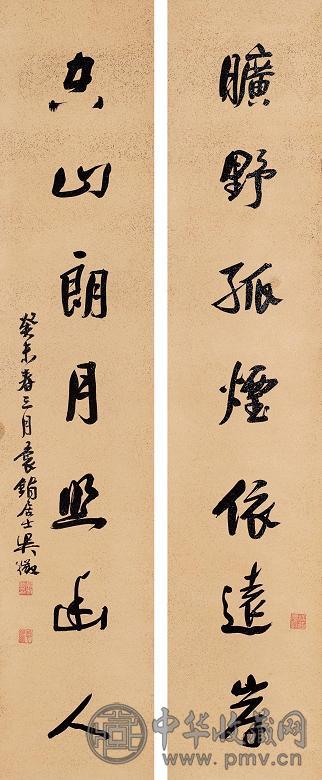 曠野孤煙依遠岑
空山朗月照幽人
癸未春三月袁鎖居士吳徵
中华收藏网
www.pmv.cn